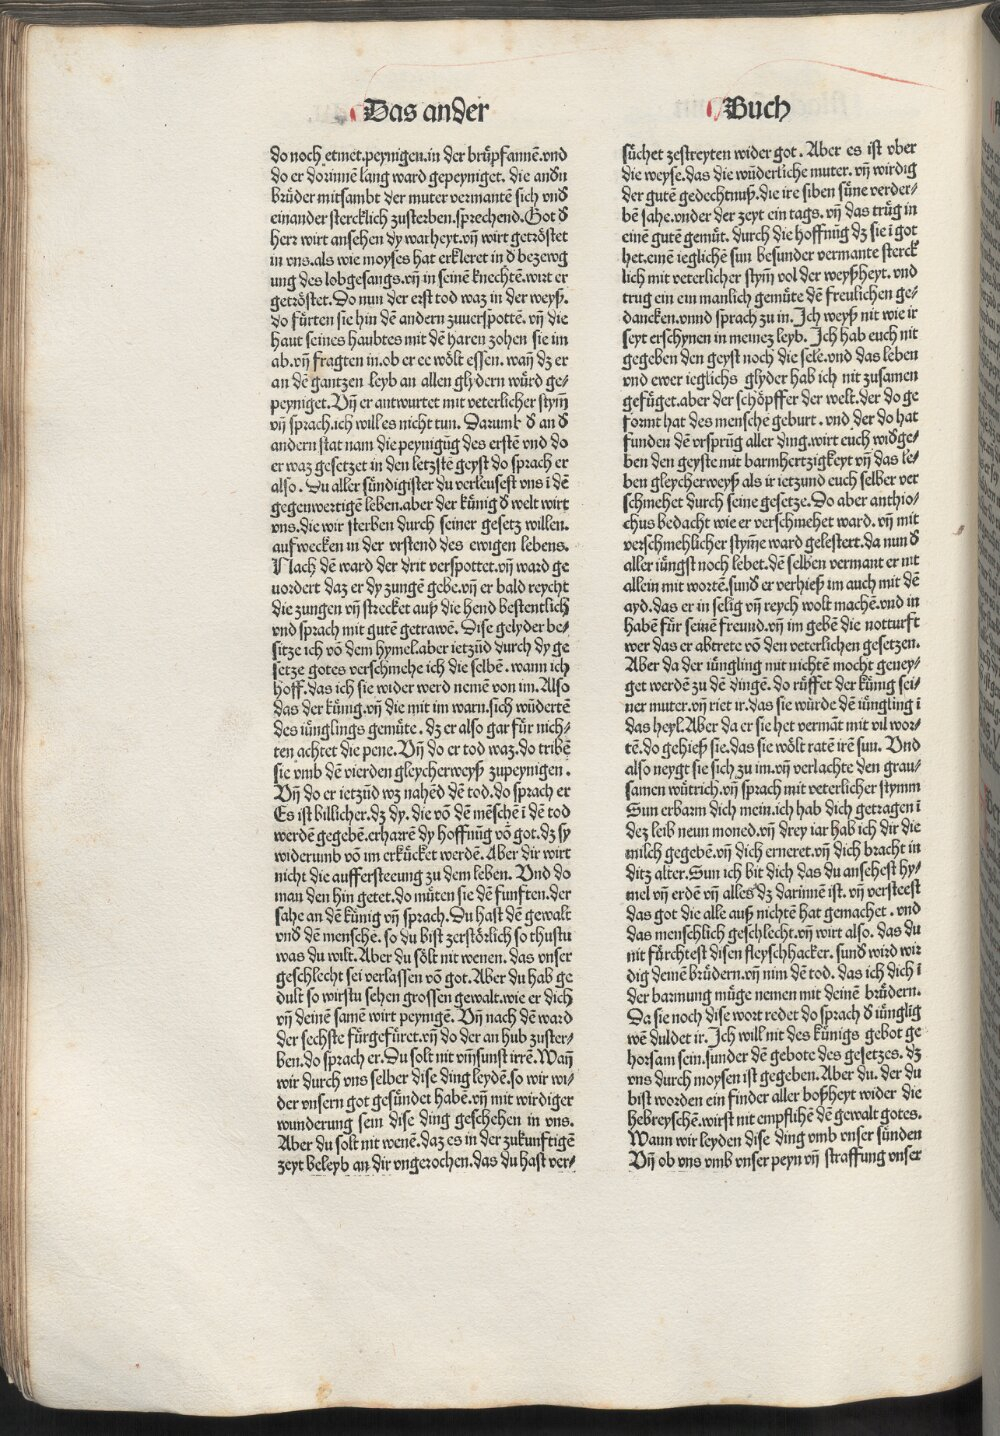 Das ander
Buch
do noch etmet.peynigen.in der brüpfannē.vnd
do er dorinnē lang ward gepeyniget. die andn̄
brüder mitsambt der muter vermantē sich vnd
einander stercklich zusterben.sprechend.Got đ
herr wirt ansehen dy warheyt.vñ wirt getröstet
in vns.als wie moyses hat erkleret in đ bezewg
ung des lobgesangs.vñ in seinē knechtē.wirt er
getröstet.Do nun der erst tod waz in der weyß.
do fürten sie hin dē andern zuuerspottē. vñ die
haut seines haubtes mit dē haren zohen sie im
ab.vñ fragten in.ob er ee wölt essen. wañ dz er
an dē gantzen leyb an allen glydern würd ge-
peyniget.Vñ er antwurtet mit veterlicher stym̄
vñ sprach.ich will es nicht tun. Darumb đ an đ
andern stat nam die peynigūg des erstē vnd do
er waz gesetzet in den letzstē geyst do sprach er
also. Du aller sündigister du verleusest vns ī dē
gegenwertigē leben.aber der künig đ welt wirt
vns.die wir sterben durch seiner gesetz willen.
aufwecken in der vrstend des ewigen lebens.
Nach dē ward der drit verspottet.vñ ward ge
uordert daz er dy zungē gebe.vñ er bald reycht
die zungen vñ strecket auß die hend bestentlich
vnd sprach mit gutē getrawē. Dise gelyder be-
sitze ich vō dem hymel.aber ietzūd durch dy ge
setze gotes verschmehe ich die selbē. wann ich
hoff.das ich sie wider werd nemē von im. Also
das der künig.vñ die mit im warn.sich wüdertē
des iünglings gemüte. dz er also gar für nich-
ten achtet die pene. Vñ do er tod waz.do tribē
sie vmb dē vierden gleycherweyß zupeynigen.
Vñ do er ietzūd wz nahēd dē tod.do sprach er
Es ist billicher.dz dy. die vō dē mēschē ī dē tod
werdē gegebē.erharrē dy hoffnūg vō got.dz sy
widerumb vō im erkücket werdē. Aber dir wirt
nicht die auffersteeung zu dem leben. Vnd do
man den hin getet.do müten sie dē funften.der
sahe an dē künig vñ sprach. Du hast dē gewalt
vnđ dē menschē. so du bist zerstörlich so thustu
was du wilt. Aber du sölt nit wenen. das vnser
geschlecht sei verlassen vō got. Aber du hab ge
dult so wirstu sehen grossen gewalt.wie er dich
vñ deinē samē wirt peynigē. Vñ nach dē ward
der sechste fürgefüret.vñ do der an hub zuster-
ben.do sprach er.Du solt nit vm̄sunst irrē.Wañ
wir durch vns selber dise ding leydē.so wir wi-
der vnsern got gesündet habē.vñ mit wirdiger
wunderung sein dise ding geschehen in vns.
Aber du solt nit wenē.daz es in der zukunftigē
zeyt beleyb an dir vngerochen.das du hast ver-
süchet zestreyten wider got. Aber es ist vber
die weyse.das die wūderliche muter. vñ wirdig
der gutē gedechtnuß.die ire siben süne verder-
bē sahe.vnder der zeyt ein tags. vñ das trüg in
einē gutē gemüt. durch die hoffnūg dz sie ī got
het.einē ieglichē sun besunder vermante sterck
lich mit veterlicher stym̄ vol der weyßheyt. vnd
trug ein ein manlich gemüte dē freulichen ge-
dancken.vnnd sprach zu in. Ich weyß nit wie ir
seyt erschynen in meinez leyb. Ich hab euch nit
gegeben den geyst noch die sele.vnd das leben
vnd ewer ieglichs glyder hab ich nit zusamen
gefüget.aber der schöpffer der welt.der do ge
formt hat des menschē geburt. vnd der do hat
funden dē vrsprūg aller ding.wirt euch wiđge-
ben den geyste mit barmhertzigkeyt vñ das le-
ben gleycherweyß als ir ietzund euch selber ver
schmehet durch seine gesetze.Do aber anthio-
chus bedacht wie er verschmehet ward. vñ mit
verschmehlicher stym̄e ward gelestert.da nun đ
aller iüngst noch lebet.dē selben vermant er nit
allein mit wortē.sunđ er verhieß im auch mit dē
ayd.das er in selig vñ reych wolt machē.vnd in
habē für seinē freund.vñ im gebē die notturft
wer das er abtrete vō den veterlichen gesetzen.
Aber da der iüngling mit nichtē mocht geney-
get werdē zu dē dingē. do rüffet der künig sei-
ner muter.vñ riet ir.das sie würde dē iüngling ī
das heyl.Aber da er sie het vermāt mit vil wor-
tē.do gehieß sie.das sie wölt ratē irē sun. Vnd
also neygt sie sich zu im.vñ verlachte den grau-
samen wütrich.vñ sprach mit veterlicher stymm
Sun erbarm dich mein.ich hab dich getragen ī
dez leib neun moned.vñ drey iar hab ich dir die
milch gegebē.vñ dich erneret.vñ dich bracht in
ditz alter.Sun ich bit dich das du ansehest hy-
mel vñ erdē vñ alles dz darinnē ist. vñ versteest
das got die alle auß nichtē hat gemachet. vnd
das menschlich geschlecht.vñ wirt also. das du
nit fürchtest disen fleyschhacker. sunđ wird wir
dig deinē brüdern.vñ nim dē tod. das ich dich ī
der barmung müge nemen mit deinē brüdern.
Da sie noch dise wort redet do sprach đ iūnglīg
wē duldet ir. Ich will nit des künigs gebot ge
horsam sein.sunder dē gebote des gesetzes. dz
vns durch moysen ist gegeben. Aber du. der du
bist worden ein finder aller boßheyt wider die
hebreyschē.wirst nit empflihē dē gewalt gotes.
Wann wir leyden dise ding vmb vnser sünden
Vñ ob vns vmb vnser peyn vñ straffung vnser